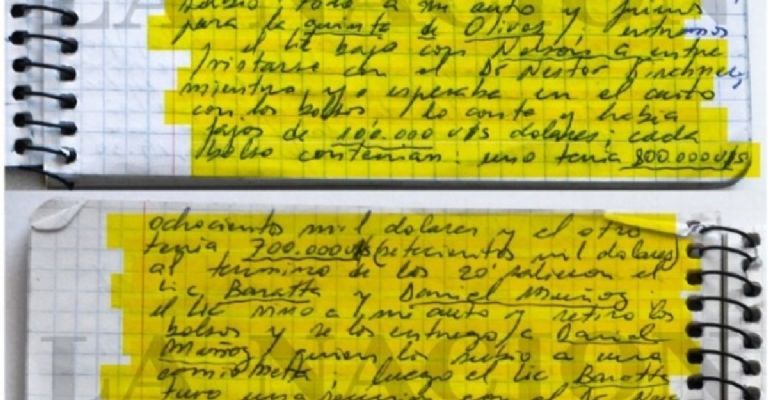 LA NACION
a mi auto y fuimos
para la quinta de Olivos, entramos
el Lic bajo con Nelson a entre
vistarse con el Dr Nestor Kirchner,
mientras yo esperaba en el auto
con los bolsos, lo conte y habia
fajos de 100.000 U$S dolares; cada
bolso contenian: uno tenia 800.000 U$S
ochocientos mil dolares y el otro
tenia 700.000 U$S (setecientos mil dolares)
al termino de los 20' salieron el
Lic Baratta y Daniel Muñoz.
el Lic vino a mi auto y retiro los
bolsos y se los entrego a Daniel
Muñoz quien los subio a una
camioneta, luego el Lic Baratta
tuvo una reunion con el Dr
LA NACION